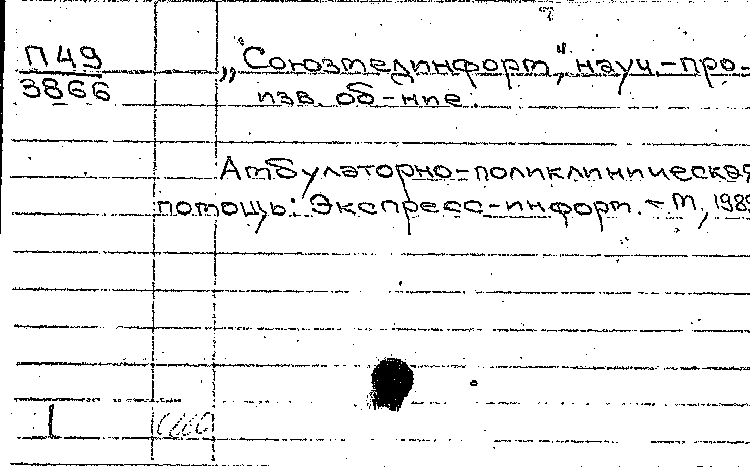 П49
3866
„Союзмединформ", науч.-про-
изв. об-ние.
Амбулаторно-поликлиническая
помощь: Экспресс-информ. - М, 1989
1